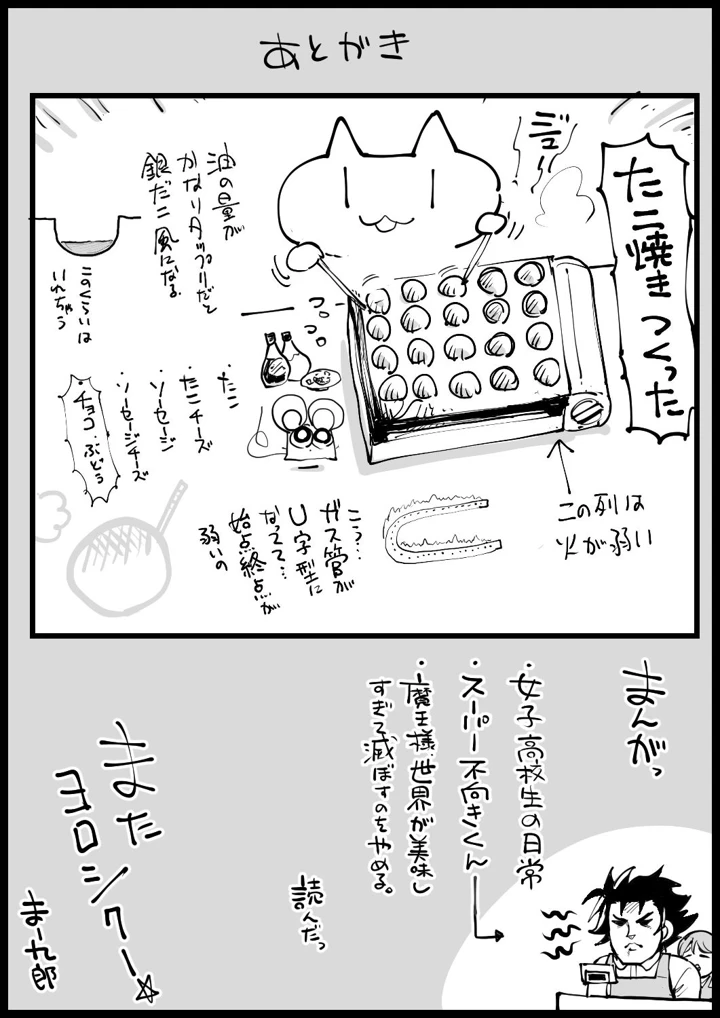 あとがき
たこ焼きつくった
ジュー
油の量が
かなりタップリだと
銀だこ風になる
このくらいは
いれちゃう
コロコロ
・たこ
・たこチーズ
・ソーセージ
・ソーセージチーズ
・チョコ・ぶどう
この列は
火が弱い
こう…
ガス管が
U字型に
なってて…
始点終点が
弱いの
まんがっ
・女子高校生の日常
・スーパー不向きくん
・魔王様、世界が美味し
すぎて滅ぼすのをやめる。
読んだっ
また
ヨロシクー☆
まー九郎